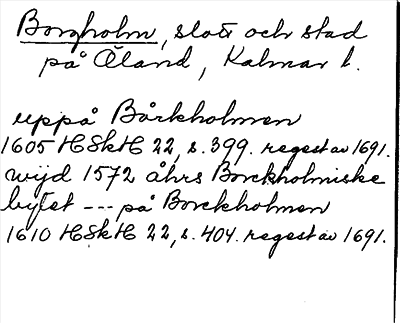 Borgholm, slott och stad
på Öland, Kalmar l.
uppå Bårkholmen
1605 HSkH 22, s. 399. regest av 1691.
wijd 1572 åhrs Borckholmiske
bytet --- på Borckholmen
1610 HSkH 22, s. 404. regest av 1691.